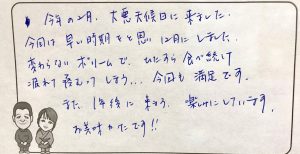 今年の2月、大悪天候日に来ました。
今回は早い時期をと思い12月にしました。
変わらないボリュームで、ひたすら食べ続け
疲れて終えてしまう… 今回も満足です。
また、1年後に来よう、楽しみにしています。
お美味かたです!!